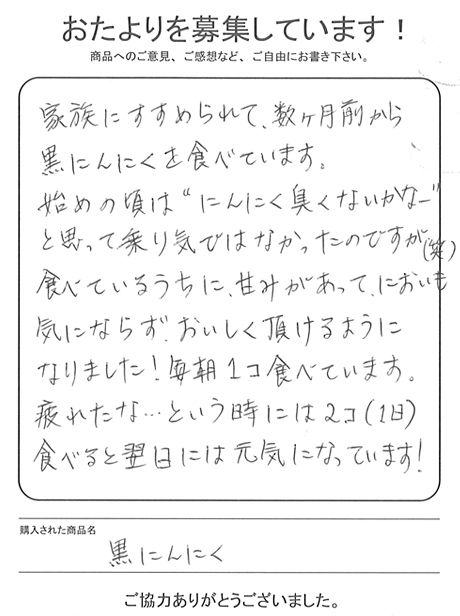 おたよりを募集しています！
商品へのご意見、ご感想など、ご自由にお書き下さい。
家族にすすめられて、数ヶ月前から
黒にんにくを食べています。
始めの頃は“にんにく臭くないかなー”
と思って乗り気ではなかったのですが(笑)
食べているうちに、甘みがあって、においも
気にならず、おいしく頂けるように
なりました！毎朝1コ食べています。
疲れたな…という時には2コ(1日)
食べると翌日には元気になっています！
購入された商品名
黒にんにく
ご協力ありがとうございました。